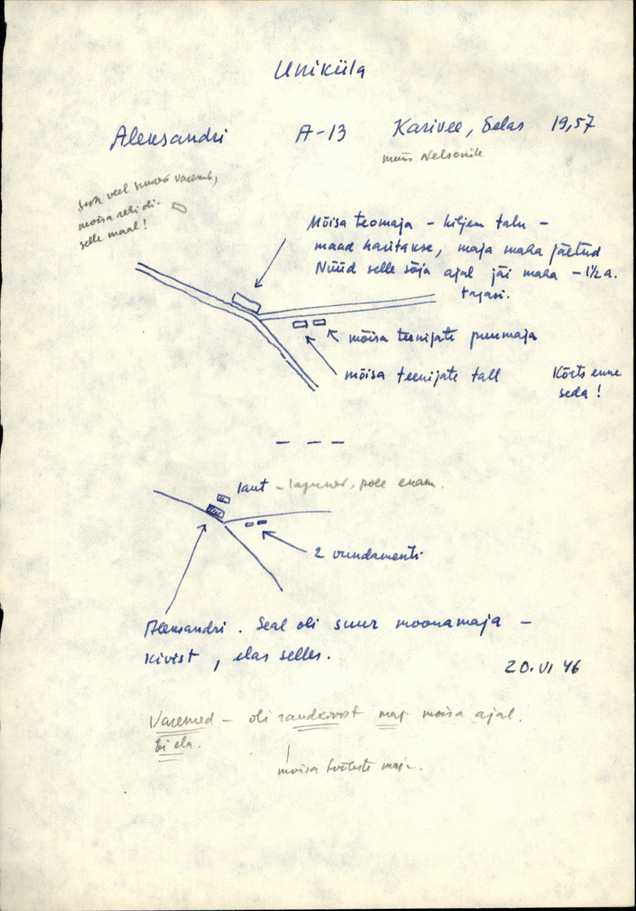 Uniküla
Aleksandri A-13 Karivee, Selas 19,57
müüs Nelsonile
seal veel suured varemed,
mõisa rehi oli
selle maal!
Mõisa teomaja - hiljem talu -
maad haritakse, maja maha jäetud
Nüüd selle sõja ajal jäi maha - 1½ a.
tagasi.
mõisa teenijate puumaja
mõisa teenijate tall
Kõrts enne
seda!
laut - lagunes, pole enam.
2 vundamenti
Aleksandri. Seal oli suur moonamaja -
kivist, elas selles.
20. VI 46
Varemed - oli raudkivist maj mõisa ajal.
Ei ela.
mõisa tööliste maja.